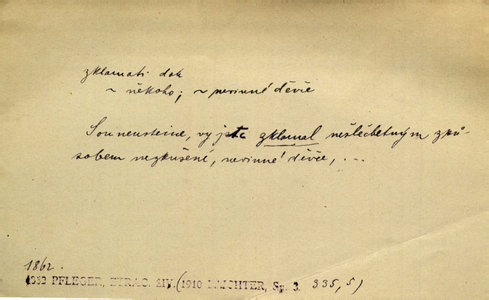 zklamati dok
~ někoho; ~ nevinné děvče
Sonnensteine, vy jste zklamal nešlechetným způ-
sobem nezkušené, nevinné děvče, ...
1862.
PFLEGER, ZTRAC. ŽIV. (1910 Sp. 3. 335,5)